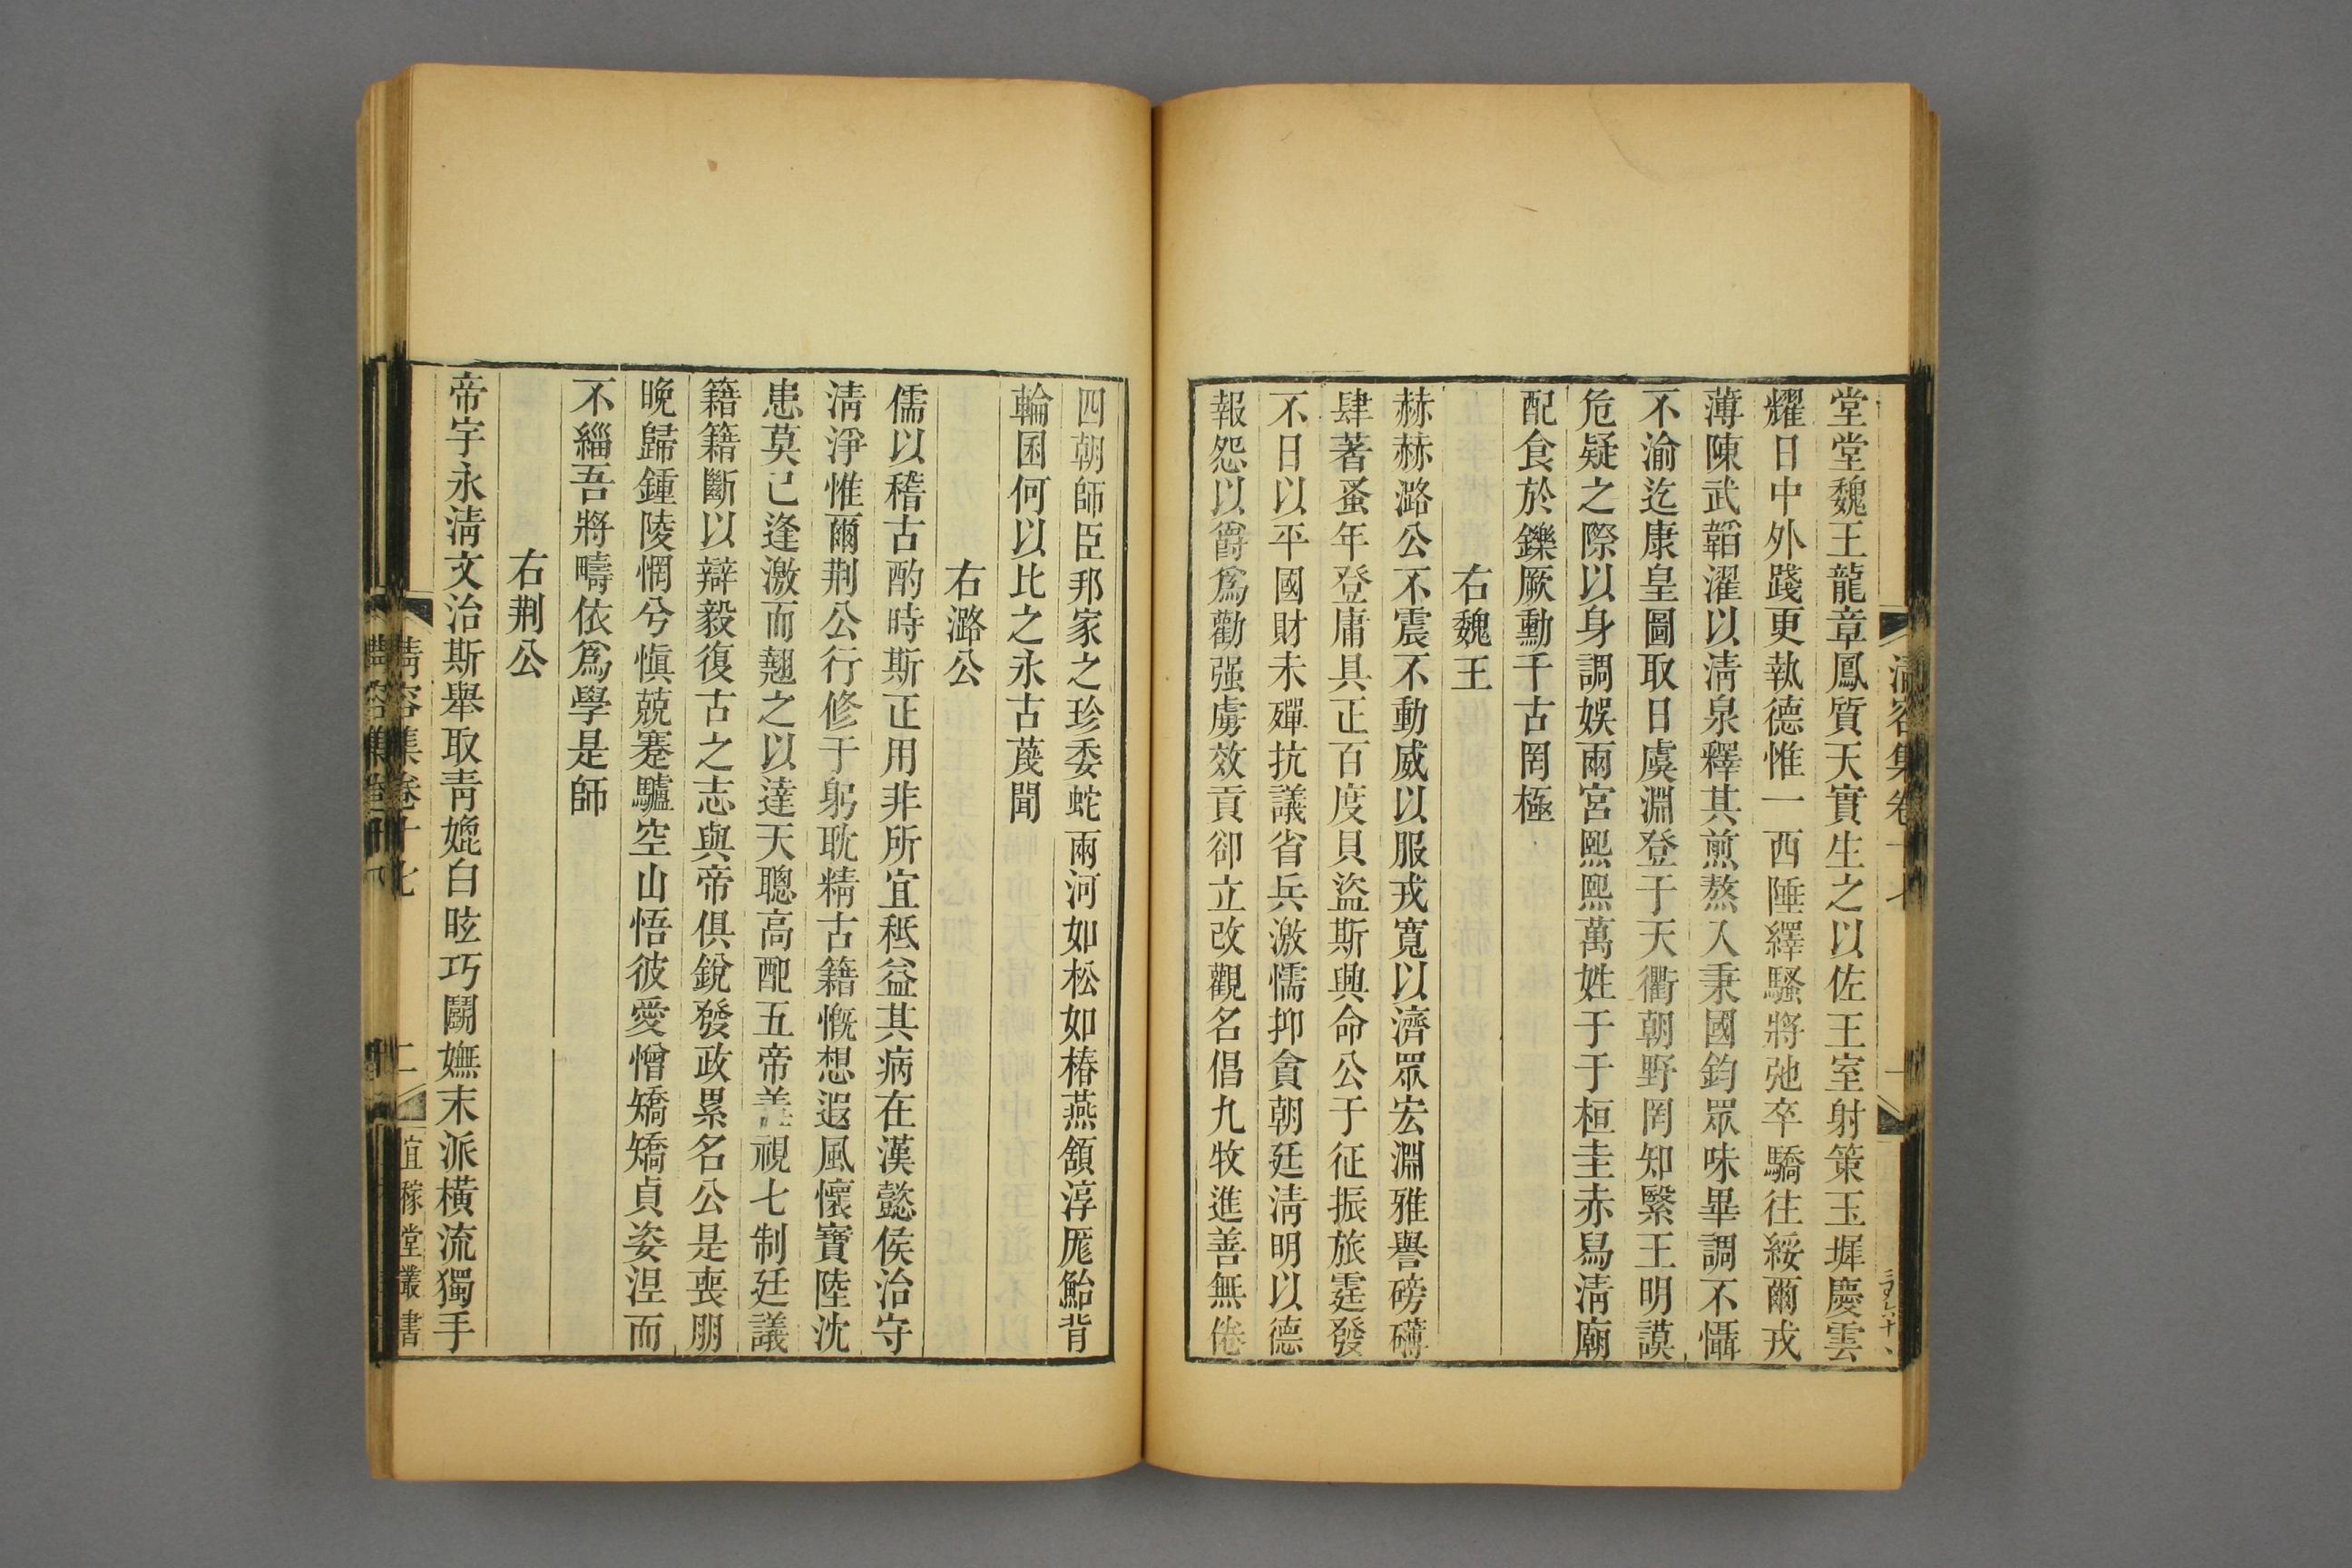 清容集卷十七
一
堂堂魏王龍章鳳質天實生之以佐王室射策玉墀慶雲
耀日中外踐更執德惟一西陲繹騷將弛卒驕往綏爾戎
薄陳武韜濯以淸泉釋其煎熬入秉國鈞眾味畢調不懾
不渝迄康皇圖取日虞淵登于天衢朝野罔知繄王明謨
危疑之際以身調娛兩宮熙熙萬姓于于桓圭赤舄淸廟
配食於鑠厥勳千古罔極
右魏王
赫赫潞公不震不動威以服戎寬以濟眾宏淵雅譽磅礴
肆著蚤年登庸具正百度貝盜斯興命公于征振旅霆發
不日以平國財未殫抗議省兵激懦抑貪朝廷淸明以德
報怨以爵爲勸强虜效貢卻立改觀名倡九牧進善無倦
四朝師臣邦家之珍委蛇兩河如松如椿燕頷淳厖鮐背
輪囷何以比之永古蔑聞
右潞公
儒以稽古酌時斯正用非所宜秪益其病在漢懿侯治守
淸淨惟爾荆公行修于躬耽精古籍慨想遐風懷寶陸沈
患莫己逢激而翹之以達天聰高配五帝善視七制廷議
籍籍斷以辯毅復古之志與帝俱銳發政累名公是喪朋
晚歸鍾陵惘兮愼兢蹇驢空山悟彼愛憎矯矯貞姿涅而
不緇吾將疇依爲學是師
右荆公
帝宇永淸文治斯舉取靑媲白昡巧鬭嫵末派橫流獨手
淸容集卷十七
二
宜稼堂叢書